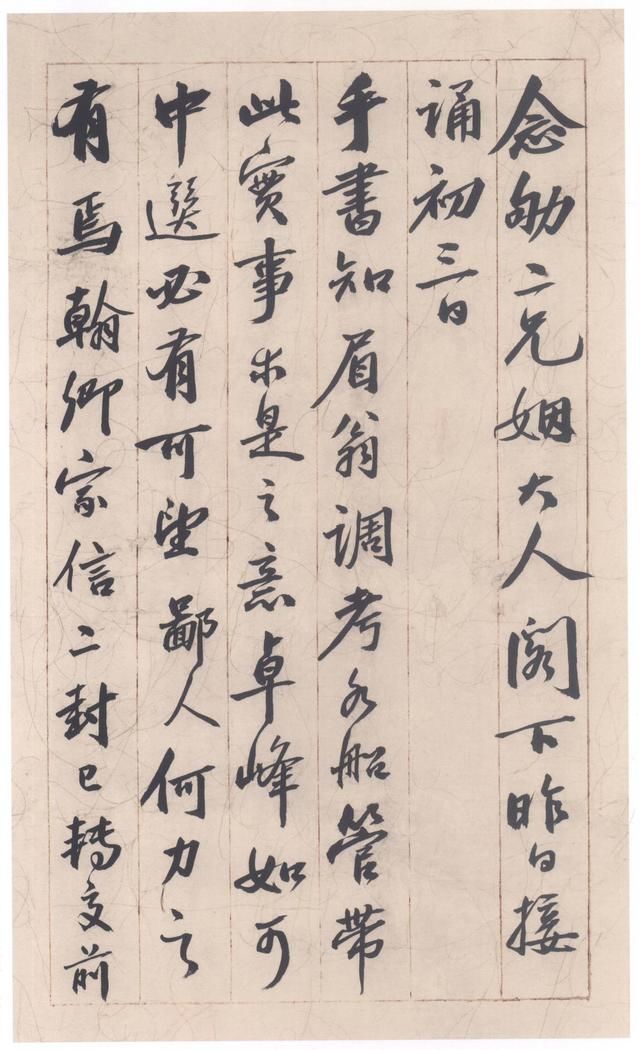 念劬二兄姻大人阁下昨日接
诵初三日
手書知眉翁调考各船管带
此實事求是之意卓峰如可
中選必有可望鄙人何力之
有焉翰卿家信二封已轉交前